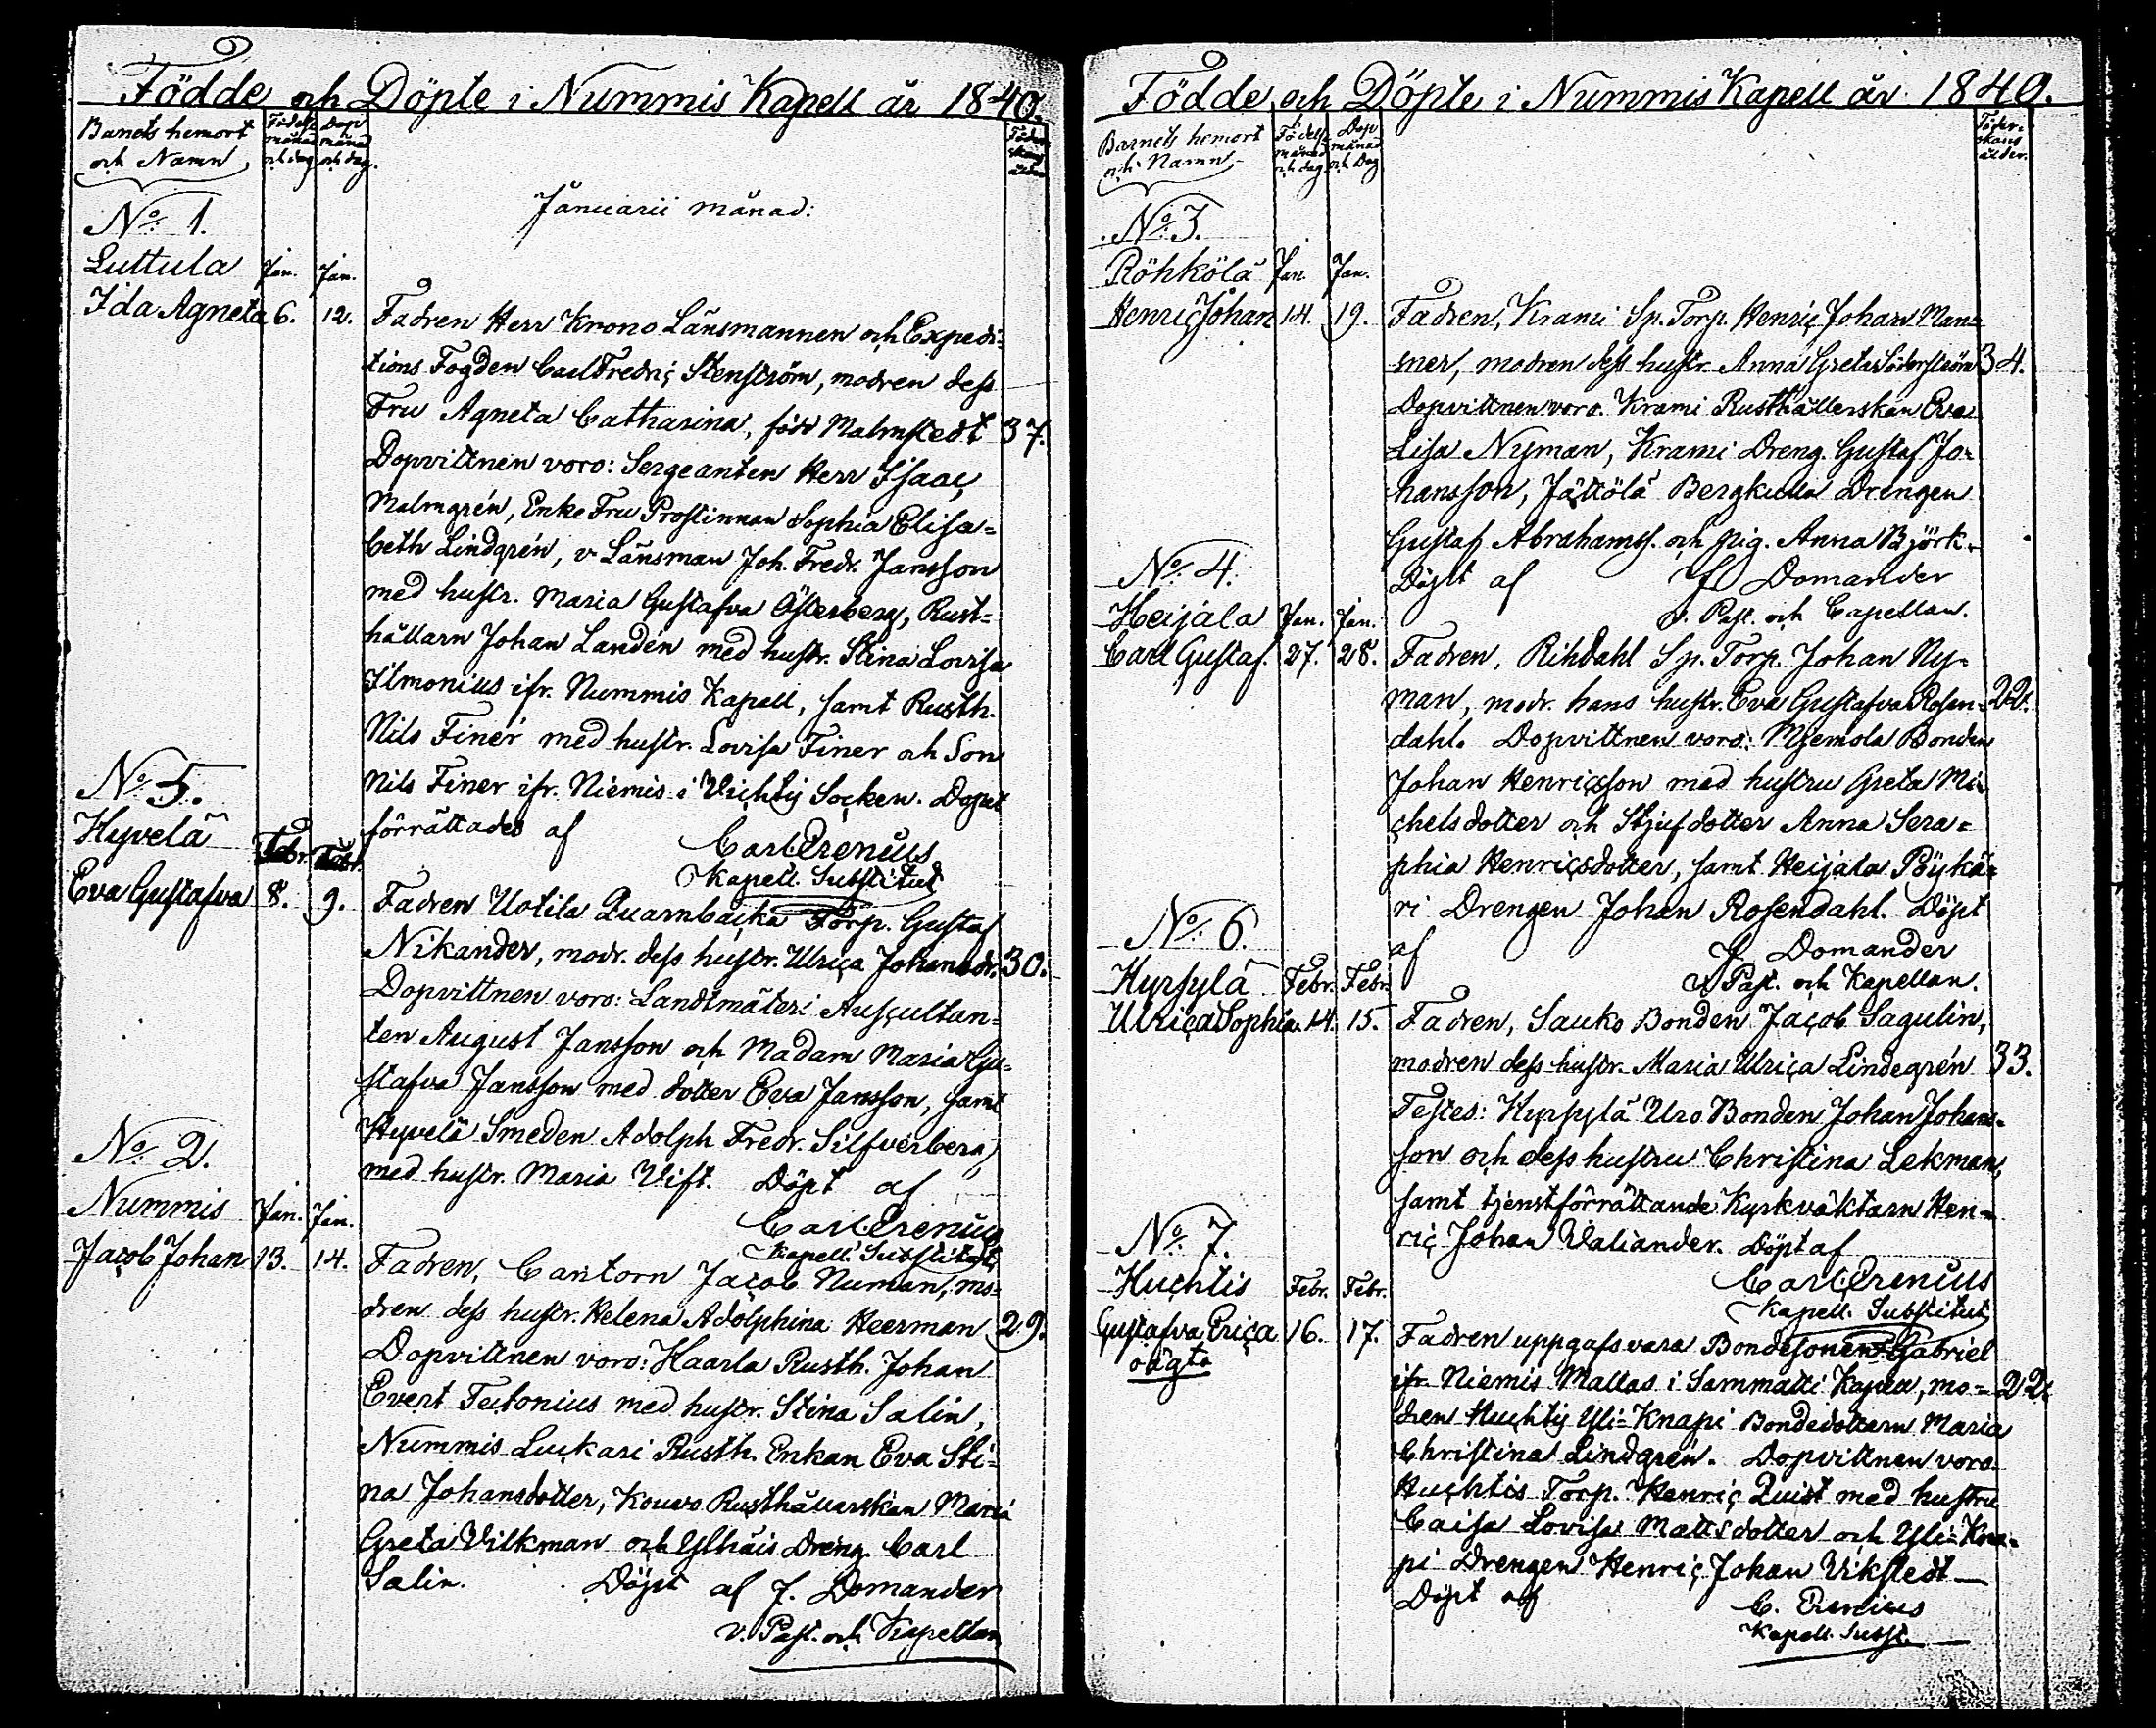 Födde och Döpte i Nummis Kapell år 1840.
Barnets hemort och Namn
Födelse månad och dag
Dop månad och dag.
Föderskans ålder
Januarii månad:
No 1.
Luttula Jan. Jan.
Ida Agneta 6. 12. Fadren Herr Krono Länsmannen och Expedi-
tions Fogden Carl Fredric Stenström, modren dess
Fru Agneta Catharina, född Malmstedt 37.
Dopvittnen voro: Sergeanten Herr Isaac
Malmgrén, Enke Fru Prostinnan Sophia Elisa=
beth Lindgrén, v. Länsman Joh. Fredr. Jansson
med hustr. Maria Gustafva Österberg, Rust=
hållarn Johan Landén med hustr. Stina Lovisa
Ilmonius ifr. Nummis Kapell, samt Rusth.
Nils Finér med hustr. Lovisa Finer och Son
Nils Finer ifr. Niemis i Vichtij Socken. Dopet
förrättades af Carl Erenius
Kapell. Substitut
No 5.
Hyvelä Febr. Febr.
Eva Gustafva 8. 9. Fadren Uotila Quarnbacka Torp. Gustaf
Nikander, modr. dess hustr. Ulrica Johansdr. 30.
Dopvittnen voro: Landtmäteri Auscultan=
ten August Jansson och Madam Maria Gu=
stafva Jansson med dotter Eva Jansson, samt
Hyvelä Smeden Adolph Fredr. Silfverberg
med hustr. Maria Vift. Döpt af
Carl Erenius
Kapell. Substitut
No 2.
Nummis Jan. Jan.
Jacob Johan 13. 14. Fadren, Cantorn Jacob Numan, mo=
dren dess hustr. Helena Adolphina Heerman 29.
Dopvittnen voro: Haarla Rusth. Johan
Evert Teutonius med hustr. Stina Salin,
Nummis Luckari Rusth. Enkan Eva Sti=
na Johansdotter, Kouvo Rusthållarskan Maria
Greta Vilkman och Ylhäis Dräng Carl
Salin. Döpt af J. Domander
v. Past. och Kapellan
Födde och Döpte i Nummis Kapell år 1840.
Barnets hemort och Namn
Födelse månad och dag
Dop månad och Dag
Föderskans ålder.
No 3.
Röhkölä Jan. Jan.
Henric Johan 14. 19. Fadren, Krami Sp. Torp. Henric Johan Man=
ner, modren dess hustr. Anna Greta Söderström 34.
Dopvittnen voro Krami Rusthållerskan Eva
Lisa Nyman, Krami Dreng. Gustaf Jo=
hansson, Jättölä Bergkulla Drengen
Gustaf Abrahamss. och Pig. Anna Björk.
Döpt af J. Domander
v. Past. och Capellan.
No 4.
Heijala Jan. Jan.
Carl Gustaf. 27. 28. Fadren, Rihdahl Sp. Torp. Johan Ny=
man, modr. hans hustr. Eva Gustafva Rosen= 22.
dahl. Dopvittnen voro: Mjemola Bonden
Johan Henricsson med hustru Greta Mi=
chelsdotter och Stjufdotter Anna Sera=
phia Henricsdotter, samt Heijala Pöykä=
ri Drengen Johan Rosendahl. Döpt
af J. Domander
v. Past. och Kapellan.
No 6.
Hyrsylä Febr. Febr.
Ulrica Sophia. 14. 15. Fadren, Sauko Bonden Jacob Sagulin,
modren dess hustr. Maria Ulrica Lindegrén 33.
Testes: Hyrsylä Uro Bonden Johan Johans=
son och dess hustru Christina Lekman,
samt tjenstförrättande Kyrkväktarn Hen=
ric Johan Valiander. Döpt af
Carl Erenius
Kapell. Substitut
No 7.
Huchtis Febr. Febr.
Gustafva Erica 16. 17. Fadren uppgafs vara Bondesonen Gabriel
oägta ifr. Niemis Mattas i Sammatti Kapell, mo= 22.
dren Huchtis Yli=Knapi Bondedottern Maria
Christina Lindgrén. Dopvittnen voro
Huchtis Torp. Henric Quist med hustru
Caisa Lovisa Mattsdotter och Yli=Kna=
pi Drengen Henric Johan Vikstedt
Döpt af C. Erenius
Kapell. Subst.